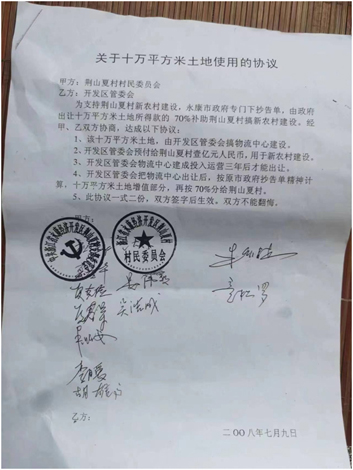 关于十万平方米土地使用的协议
甲方：荆山夏村村民委员会
乙方：开发区管委会
为支持荆山夏村新农村建设，永康市政府专门下抄告单，由政府
出让十万平方米土地所得款的 70%补助荆山夏村搞新农村建设。经
甲、乙双方协商，达成以下协议：
1、该十万平方米土地，由开发区管委会搞物流中心建设。
2、开发区管委会预付给荆山夏村壹亿元人民币，用于新农村建设。
3、开发区管委会物流中心建成投入运营三年后才能出让。
4、开发区管委会把物流中心出让后，按原市政府抄告单精神计
算，十万平方米土地增值部分，再按 70%分给荆山夏村。
5、此协议一式二份，双方签字后生效，双方不能翻悔。
甲方：
村民委员会
乙方：
二00八年七月九日